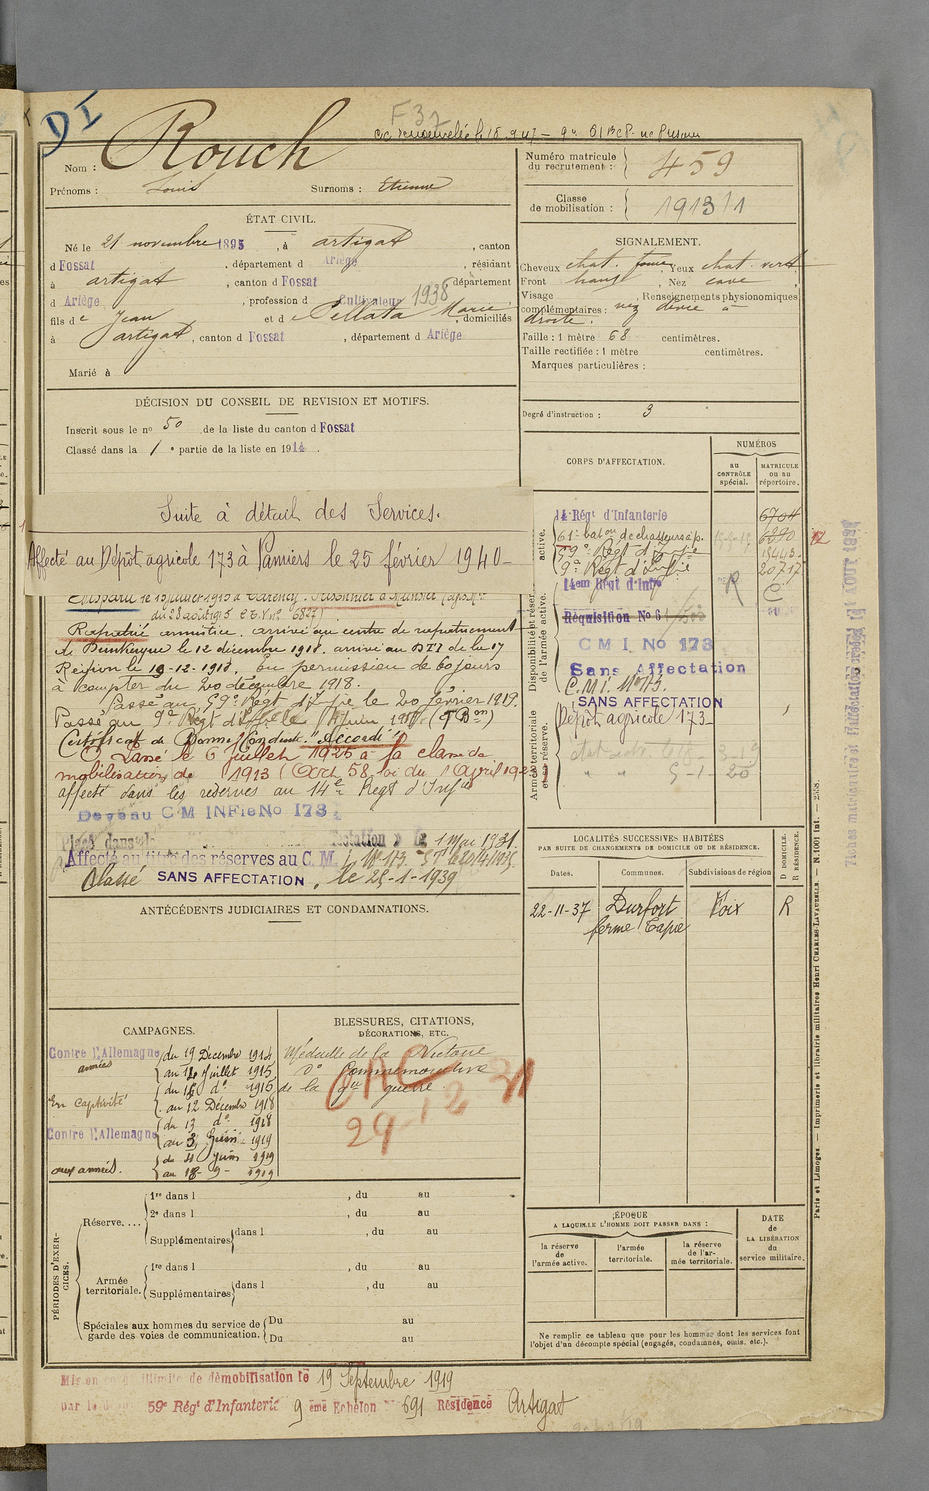 DI
F 37
Nom : Rouch
Prénoms : Louis Surnoms : Etienne
Numéro matricule
du recrutement : 459
Classe
de mobilisation : 1913/1
ÉTAT CIVIL.
Né le 21 novembre 1895, à Artigat, canton
d Fossat, département d Ariège, résidant
à Artigat, canton d Fossat département
d Ariège, profession d Cultivateur 1938
fils de Jean et de Pellata Marie, domiciliés
à Artigat, canton d Fossat, département d Ariège
Marié à
SIGNALEMENT.
Cheveux chat. foncé, Yeux chat. vert
Front , Nez cave,
Visage , Renseignements physionomiques
complémentaires : nez dévié à
droite.
Taille : 1 mètre 68 centimètres.
Taille rectifiée : 1 mètre centimètres.
Marques particulières :
Degré d'instruction : 3
DÉCISION DU CONSEIL DE REVISION ET MOTIFS.
Inscrit sous le no 50 de la liste du canton d Fossat
Classé dans la 1e partie de la liste en 1914.
Suite à détail des Services.
Affecté au Dépôt agricole 173 à Pamiers le 25 février 1940-
Disparu le 15 juillet 1915 à Carency. Prisonnier à Munster
du 28 août 1915
Rapatrié armistice. arrivé au centre de rapatriement
de Dunkerque le 12 décembre 1918. arrivé au DTI de la 17
Région le 19-12-1918. En permission de 60 jours
à compter du 20 décembre 1918.
Passé au 59e Régt d'Inf ie le 20 février 1919.
Passé au 9e Régt d'Inf ie le
Certificat de Bonne Conduite "Accordé"
Classé le 6 juillet 1925 à la classe de
mobilisation de 1913 (Art 58 loi du 1 Avril 1923)
affecté dans les réserves au 14e Régt d'Inf ie
Devenu C M INFie No 173
Placé dans 1 Mai 1931.
Affecté au titre des réserves au C. M. I. No 173
Classé SANS AFFECTATION, le 25-1-1939
CORPS D'AFFECTATION.
NUMÉROS
au
CONTRÔLE
spécial.
MATRICULE
ou au
répertoire.
active.
14e Régt d'Infanterie 6704
61e baton de chasseurs à p. 6290
59e Régt d'Inf ie
9e Régt d'Inf ie 20717
Disponibilité et réserve
de l'armée active.
14em Régt d'Infie R C
Réquisition No 6
C M I. No 173
Sans Affectation
C. M I. No 173.
SANS AFFECTATION
Dépôt agricole 173
Armée territoriale
et sa réserve.
5-1-20
ANTÉCÉDENTS JUDICIAIRES ET CONDAMNATIONS.
LOCALITÉS SUCCESSIVES HABITÉES
PAR SUITE DE CHANGEMENTS DE DOMICILE OU DE RÉSIDENCE.
Dates. Communes. Subdivisions de région
D DOMICILE.
R RÉSIDENCE.
22-11-37 Durfort Foix R
ferme Tapie
CAMPAGNES.
Contre l'Allemagne du 19 Décembre 1914
armées au 14 Juillet 1915
En Captivité du 15 do 1915
au 12 Décembre 1918
Contre l'Allemagne du 13 do 1918
au 3 Juin 1919
aux armées. du 4 Juin 1919
au 18-9-1919
BLESSURES, CITATIONS,
DÉCORATIONS, ETC.
Médaille de la Victoire
do Commémorative
de la gde guerre
PÉRIODES D'EXERCICES.
Réserve....
1re dans l , du au
2e dans l , du au
Supplémentaires dans l , du au
Armée
territoriale.
1re dans l , du au
Supplémentaires dans l , du au
Spéciales aux hommes du service de
garde des voies de communication.
Du au
Du au
ÉPOQUE
A LAQUELLE L'HOMME DOIT PASSER DANS :
la réserve
de
l'armée active.
l'armée
territoriale.
la réserve
de l'armée territoriale.
DATE
de
LA LIBÉRATION
du
service militaire.
Ne remplir ce tableau que pour les hommes dont les services font
l'objet d'un décompte spécial (engagés, condamnés, omis, etc.).
Mis en congé illimité de démobilisation le 19 Septembre 1919
par le 59e Régt d'Infanterie 9 ème Echelon No 691 Résidence Artigat
Paris et Limoges. — Imprimerie et librairie militaires Henri CHARLES-LAVAUZELLE. — N. 1001 Int. — 2558.